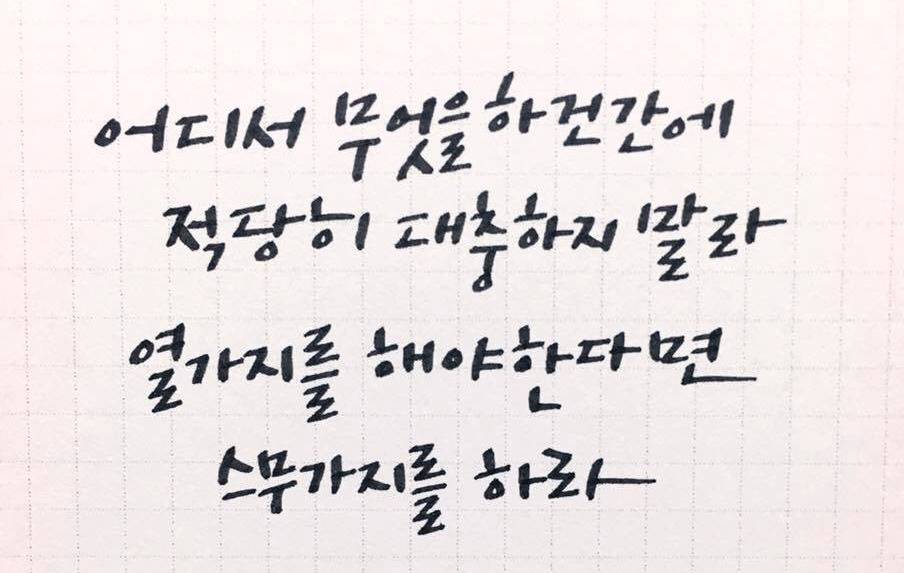 어디서 무엇을하건간에
적당히 대충하지 말라
열가지를 해야한다면
스무가지를 하라